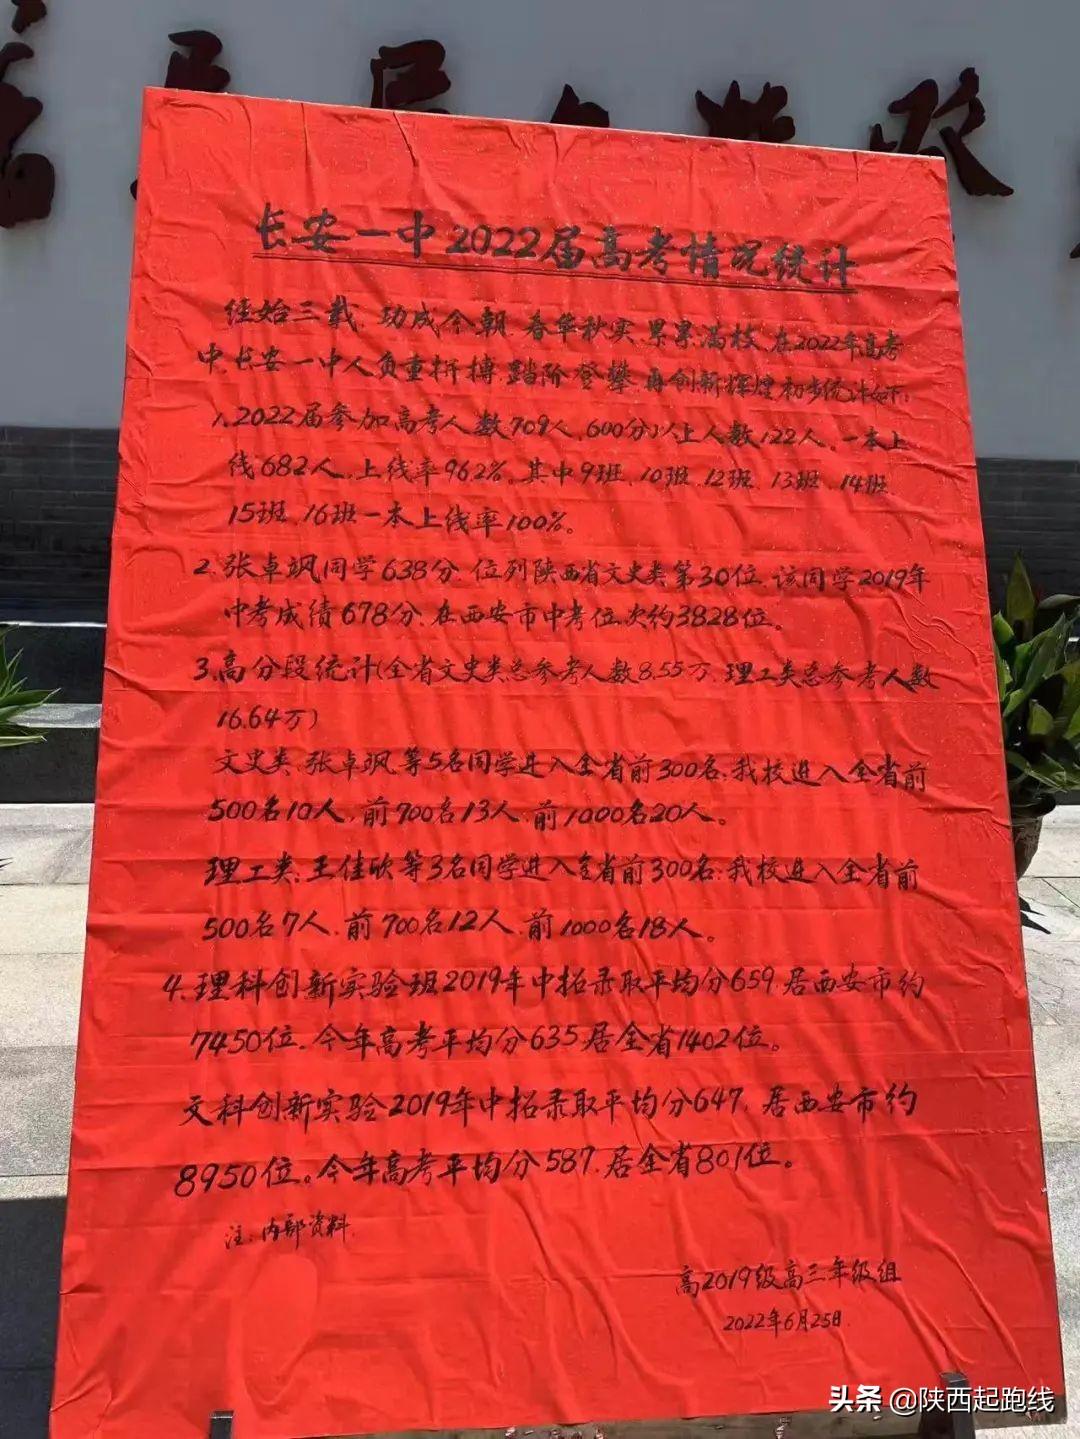 长安一中2022届高考情况统计
经始三载、功成今朝、春华秋实、累累满枝、在2022年高考
中、长安一中人负重拼搏、踏阶登攀、再创新辉煌、初步统计如下：
1、2022届参加高考人数709人、600分以上人数122人。一本上
线682人、上线率96.2%。其中9班、10班、12班、13班、14班、
15班、16班一本上线率100%。
2、张卓飒同学638分、位列陕西省文史类第30位、该同学2019年
中考成绩678分、在西安市中考位次约3828位。
3、高分段统计(全省文史类总参考人数8.55万、理工类总参考人数
16.64万)
文史类、张卓飒等5名同学进入全省前300名；我校进入全省前
500名10人、前700名13人、前1000名20人。
理工类：王佳欣等3名同学进入全省前300名；我校进入全省前
500名7人、前700名12人、前1000名18人。
4、理科创新实验班2019年中招录取平均分659、居西安市约
7450位、今年高考平均分635、居全省1402位。
文科创新实验2019年中招录取平均分647、居西安市约
8950位。今年高考平均分587、居全省801位。
注：内部资料
高2019级高三年级组
2022年6月25日
头条 @陕西起跑线